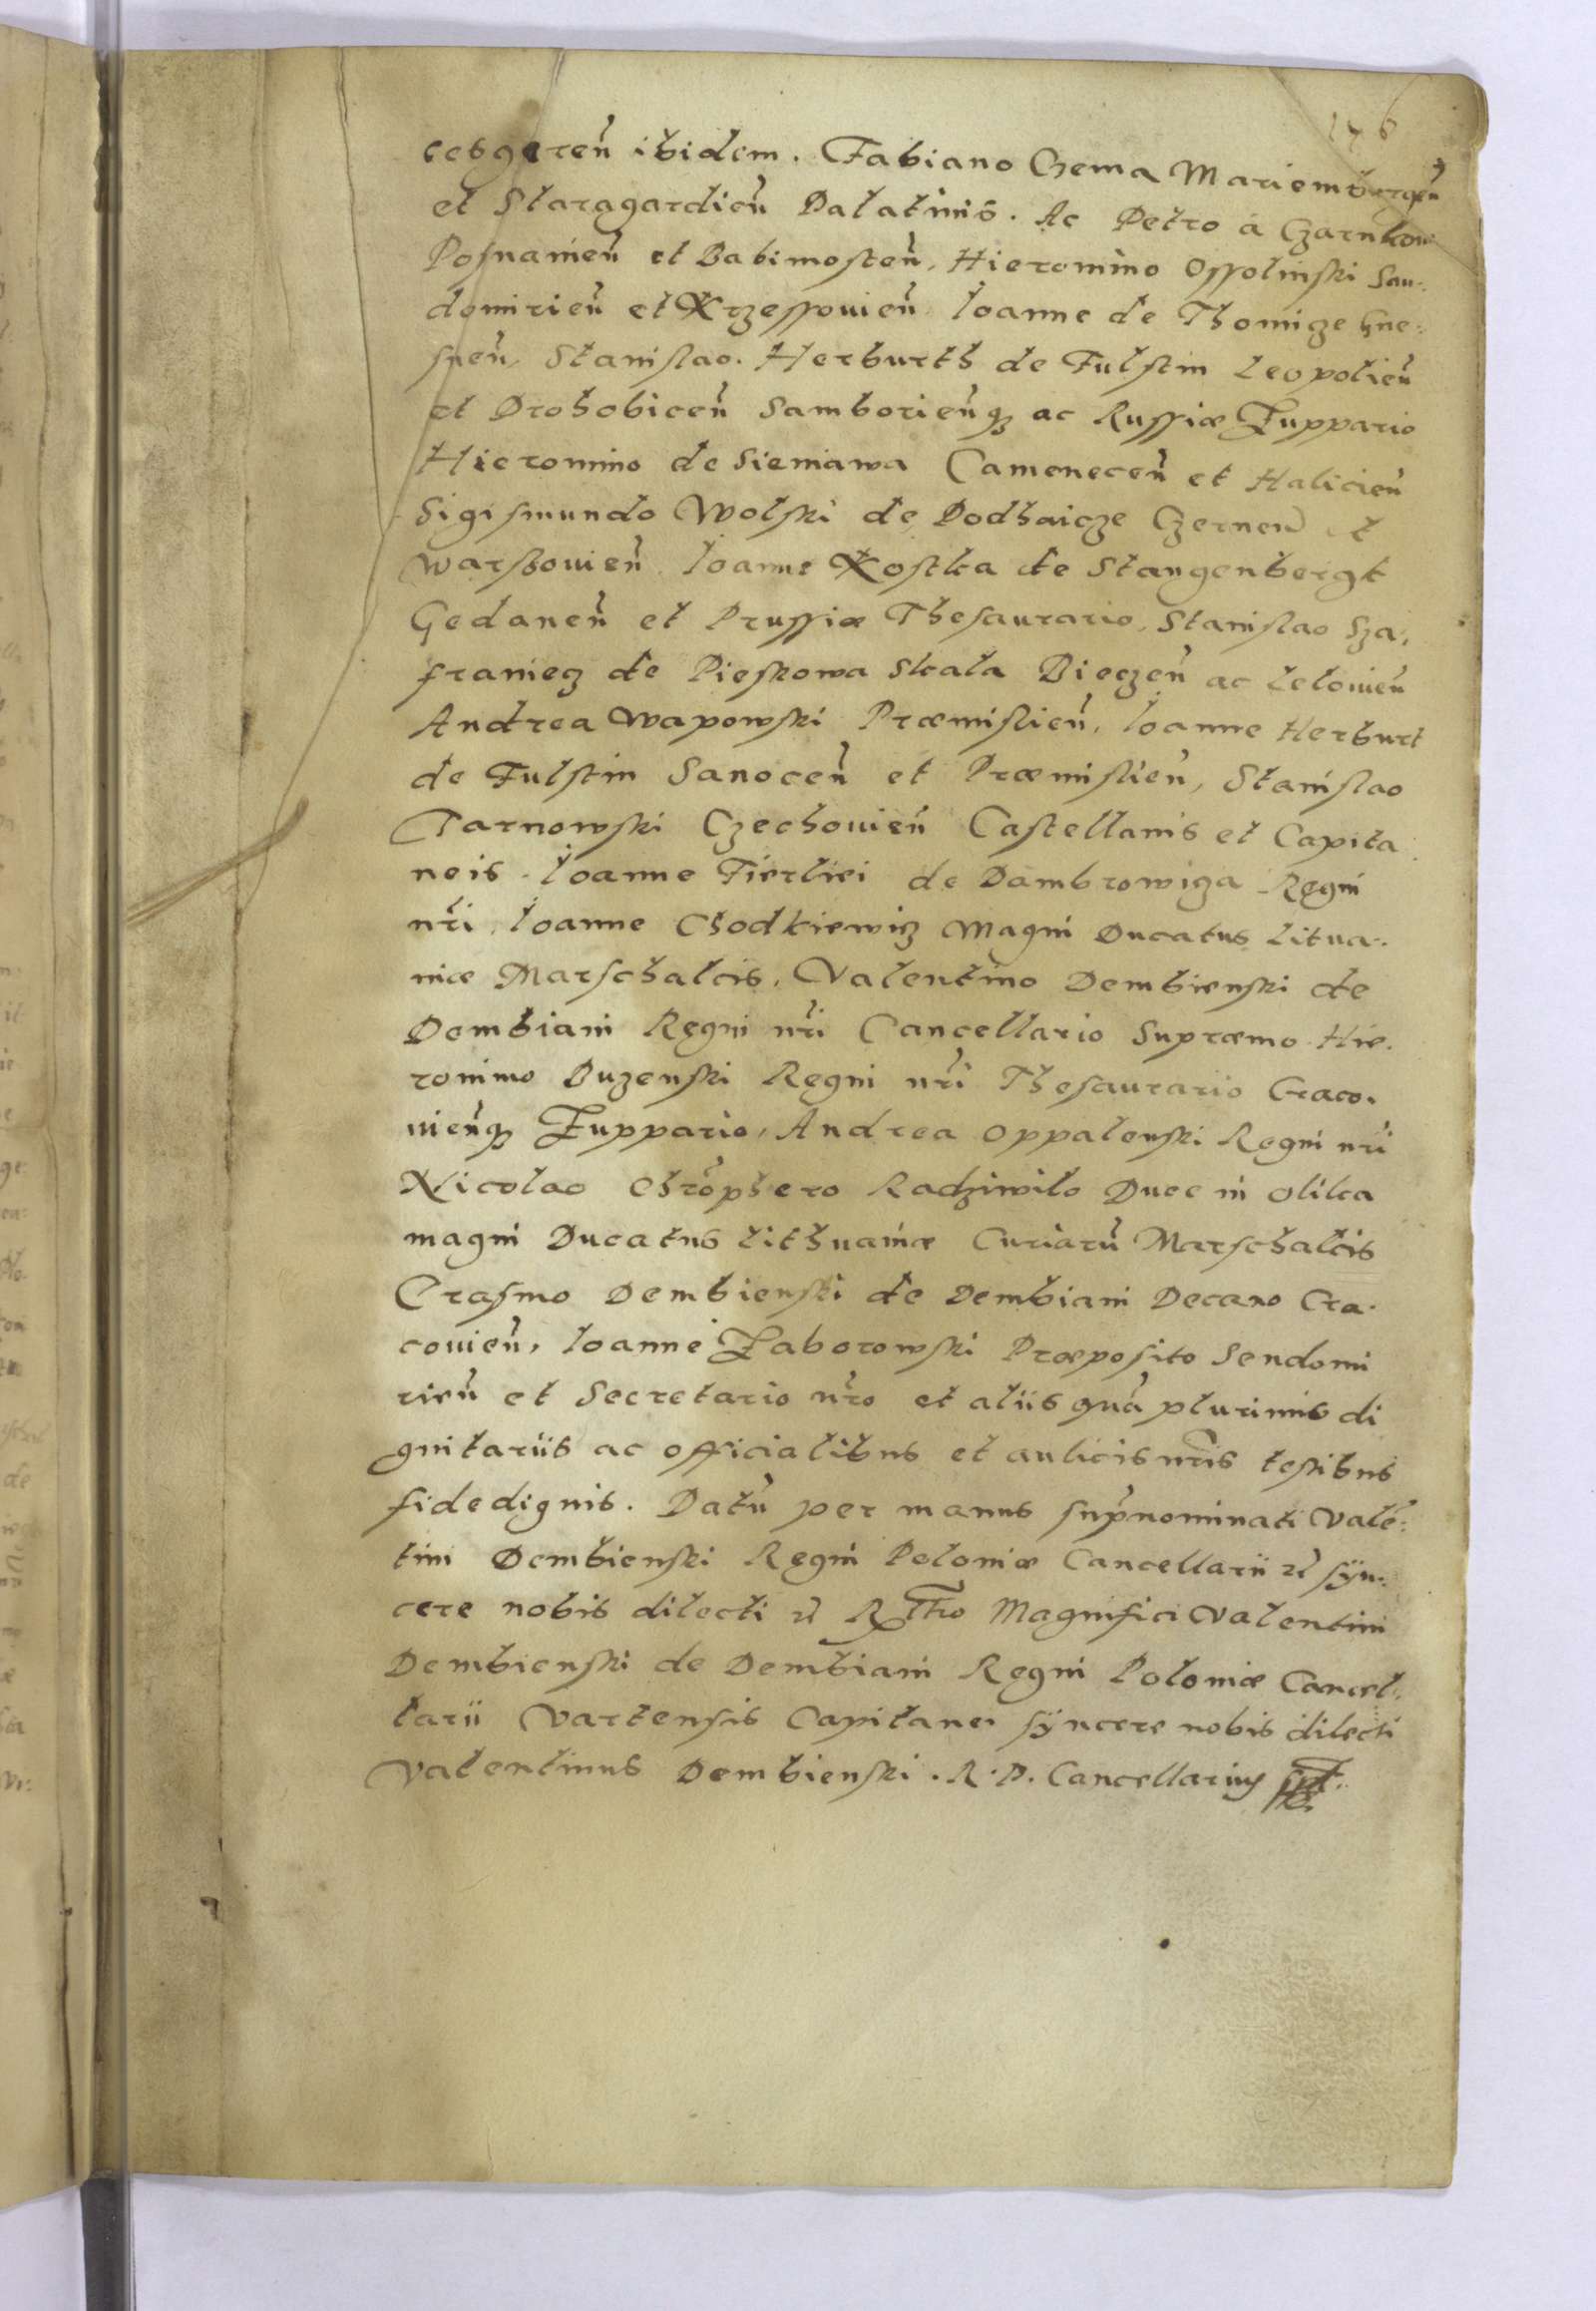 176
cesgeren̄ ibidem. Fabiano Czema Mariemburgen̄
et Staragardien̄ Palatinis. Ac Petro á Czarnkow
Posnanien̄ et Babimosten̄, Hieronimo Ossolinski San:
domirien̄ et Krzessouien̄ Ioanne de Thomicze Gne:
snen̄, Stanislao. Herburth de Fulstin Leopolien̄
et Drohobicen̄ Samborien̄q3 ac Russiæ Zuppario
Hieronimo de Sieniawa Camenecen̄ et Halicien̄
Sigismundo Wolski de Podhaicze Czernen̄ et
Warssouien̄ Ioanne Kostka de Stangenbergk
Gedanen̄ et Prussiæ Thesaurario, Stanislao Sza,
franiecz de Pieskowa Skala Bieczen̄ ac Lelouien̄
Andrea Wapowski Præmislien̄, Ioanne Herburt
de Fulstin Sanocen̄ et Præmislien̄, Stanislao
Tarnowski Czechouien̄ Castellanis et Capita
neis. Ioanne Fierliei de Dambrowicza Regni
nr̄i, Ioanne Chodkiewicz Magni Ducatus Litua.
niæ Marschalcis, Valentino Dembienski de
Dembiani Regni nr̄i Cancellario Supræmo Hie.
ronimo Buzenski Regni nr̄i Thesaurario Craco.
uien̄q3 Zuppario, Andrea Oppalenski Regni nr̄i
Nicolao Chr̄ophero Radziwilo Duce in Olika
magni Ducatus Lithuaniæ Curiarū Marschalcis
Erasmo Dembienski de Dembiani Decano Cra.
couien̄, Ioanne Zaborowski Præposito Sendomi
rien̄ et Secretario nr̄o et aliis quā plurimis di
gnitariis ac officialibus et aulicis nr̄is testibus
fidedignis. Datū per manus sup̄nominati Valē:
tini Dembienski Regni Poloniæ Cancellarii et sÿn:
cere nobis dilecti Magnifici Valentini
Dembienski de Dembiani Regni Poloniæ Cancel:
larii Vartensis Capitanei sÿncere nobis dilecti
Valentinus Dembienski. R. P. Cancellarius sst.